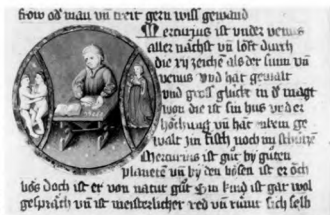 frow od man vn̄ treit gern wiss gewand
Mercurius ist vnder venus
aller nächst vn̄ löst durch
die xij zeichē als der sunn vn̄
venus vnd hat gewalt
vnd gross glück in d magt
won die ist sin hus vnd er
höchung vn̄ hat klein ge
walt im fisch noch im schützē
Mercurius ist gůt by gůten
planetē vn̄ by den bösen ist er öch
bös doch ist er von natur gůt Sin kind ist gar wol
gespräch vn̄ ist meisterlicher red vn̄ rümt sich selb